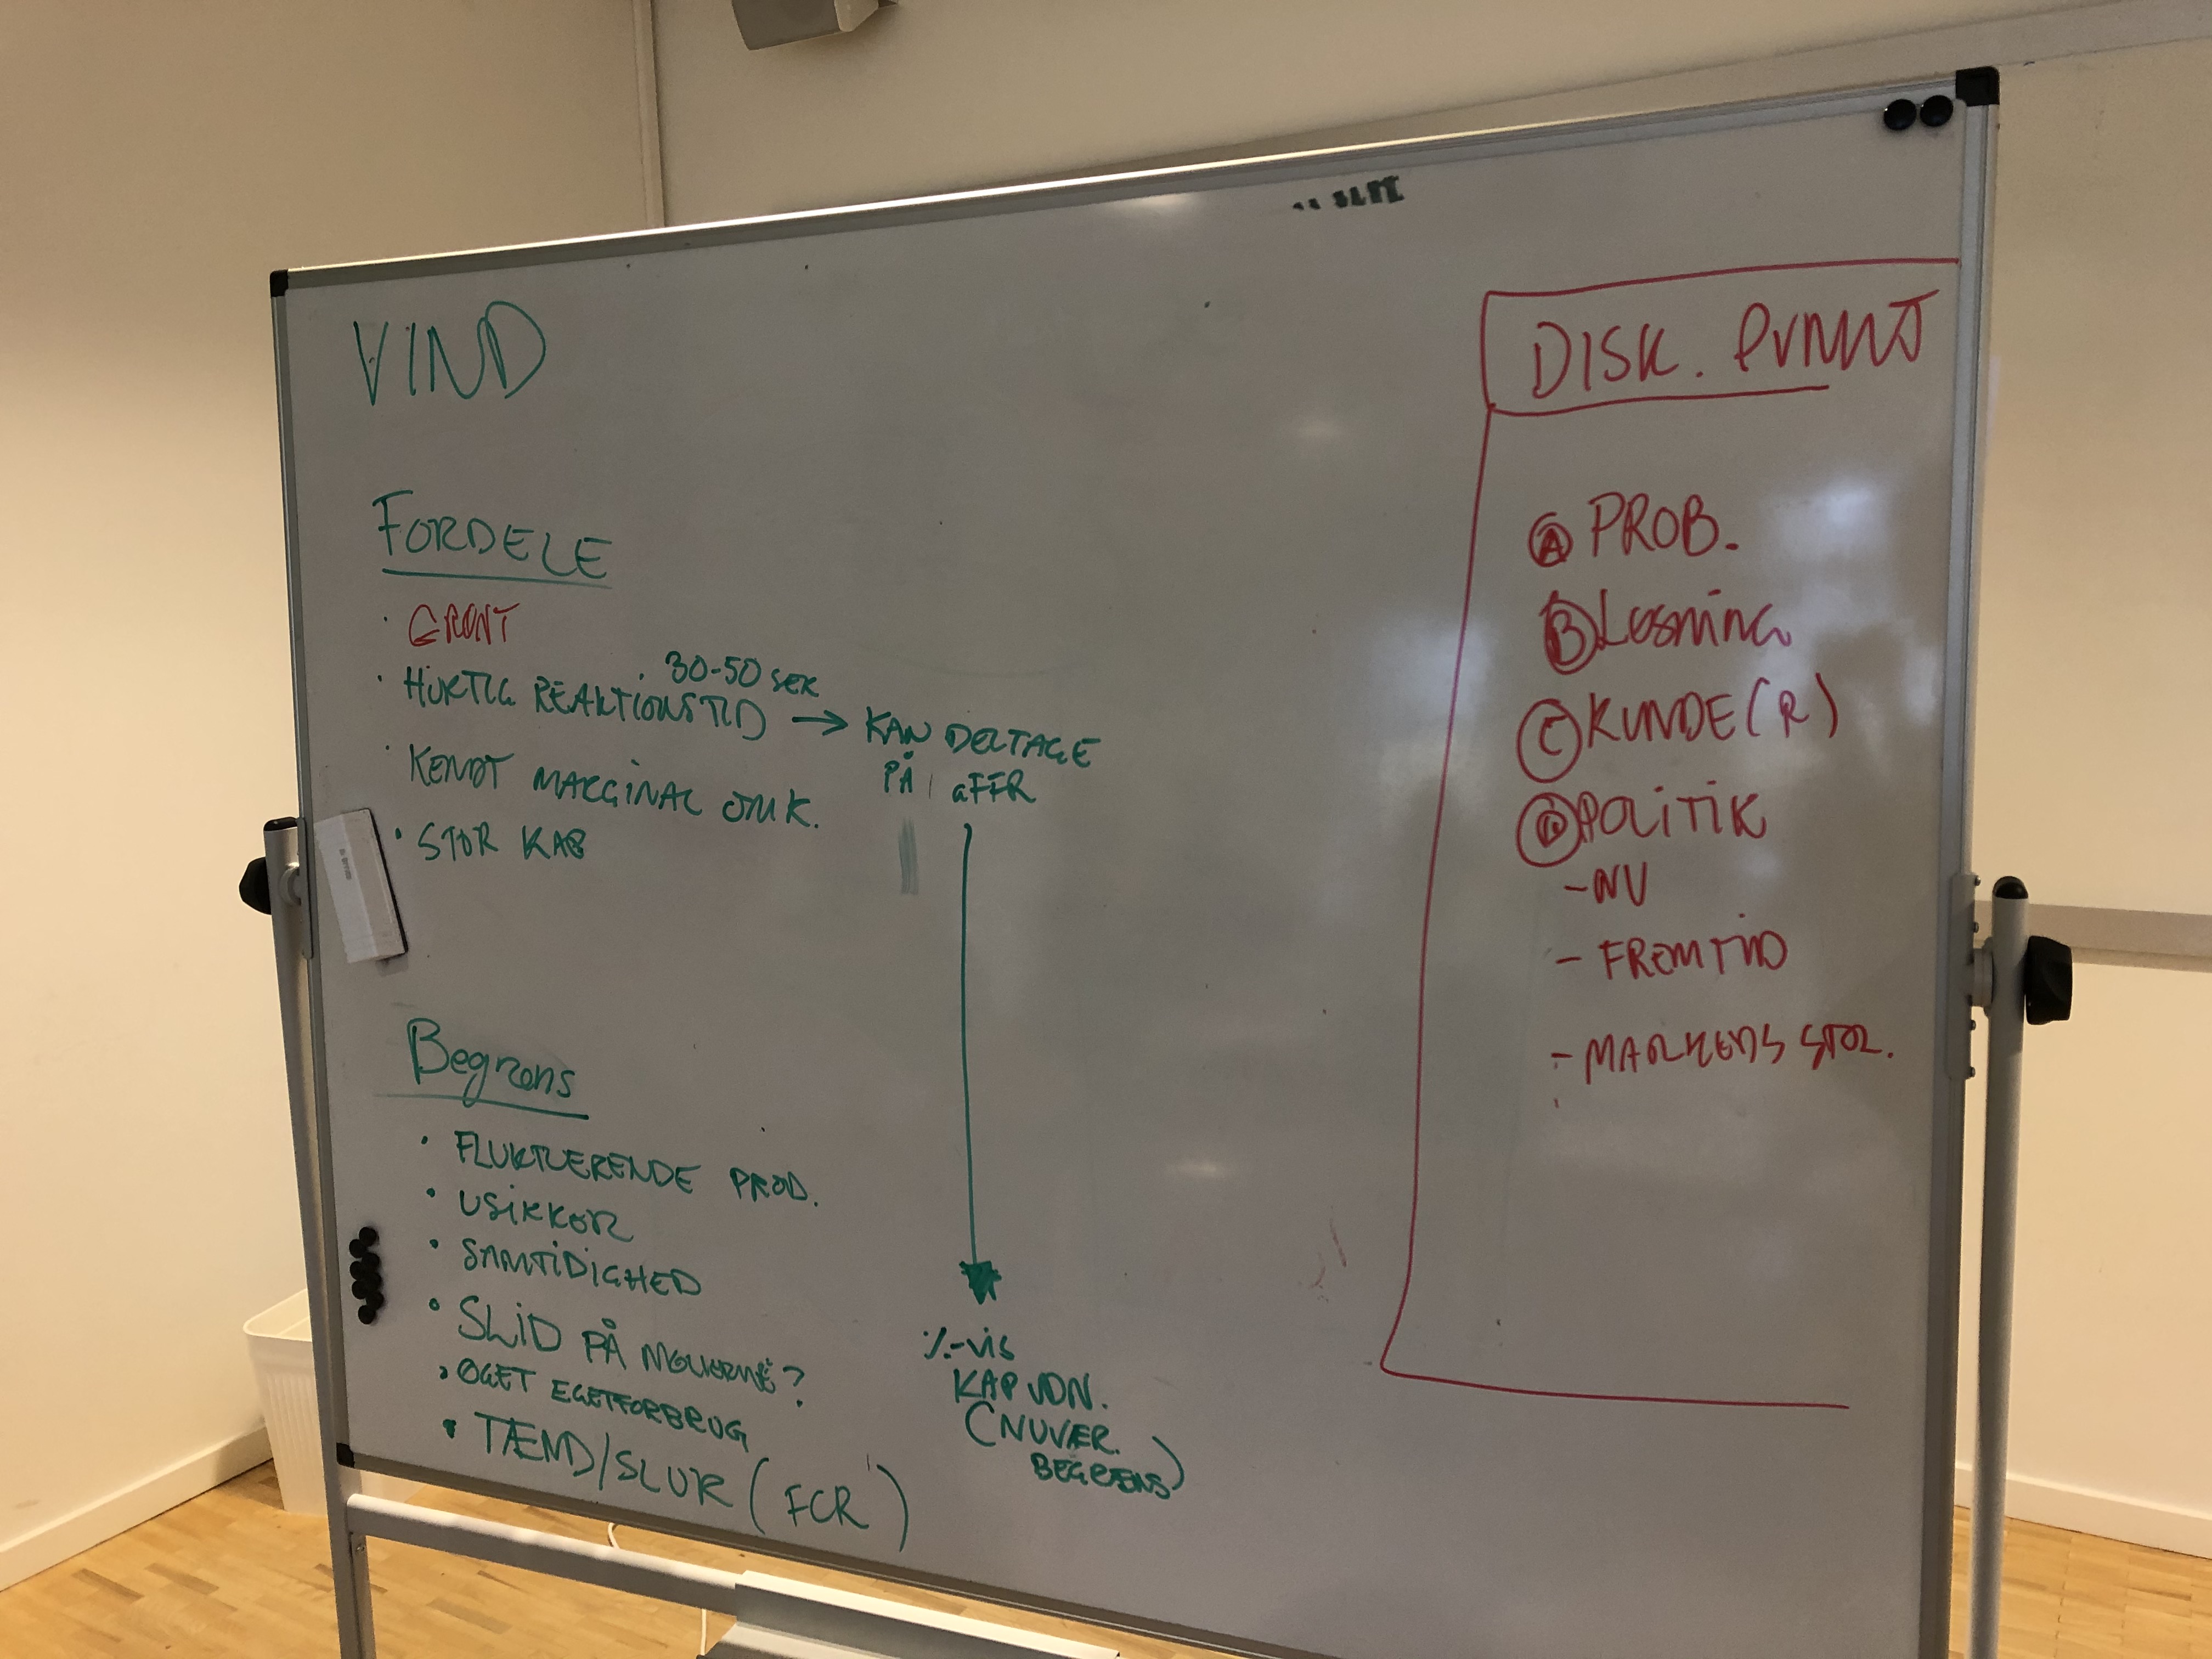 VIND
FORDELE
· GRØNT
· HURTIG REAKTIONSTID → KAN DELTAGE
30-50 SEK
PÅ aFFR
· KENDT MARGINAL OMK.
· STOR KAP
Begræns
· FLUKTUERENDE PROD.
· USIKKER
· SAMTIDIGHED
· SLID PÅ MØLLERNE?
· ØGET EGETFORBRUG
· TÆND/SLUK (FCR)
%-vis
KAP VDN.
(NUVÆR.
BEGRÆNS)
DISK. PUNKT
A PROB.
B LØSNING
C KUNDE(R)
D POLITIK
- NU
- FREMTID
- MARKEDS STØR.